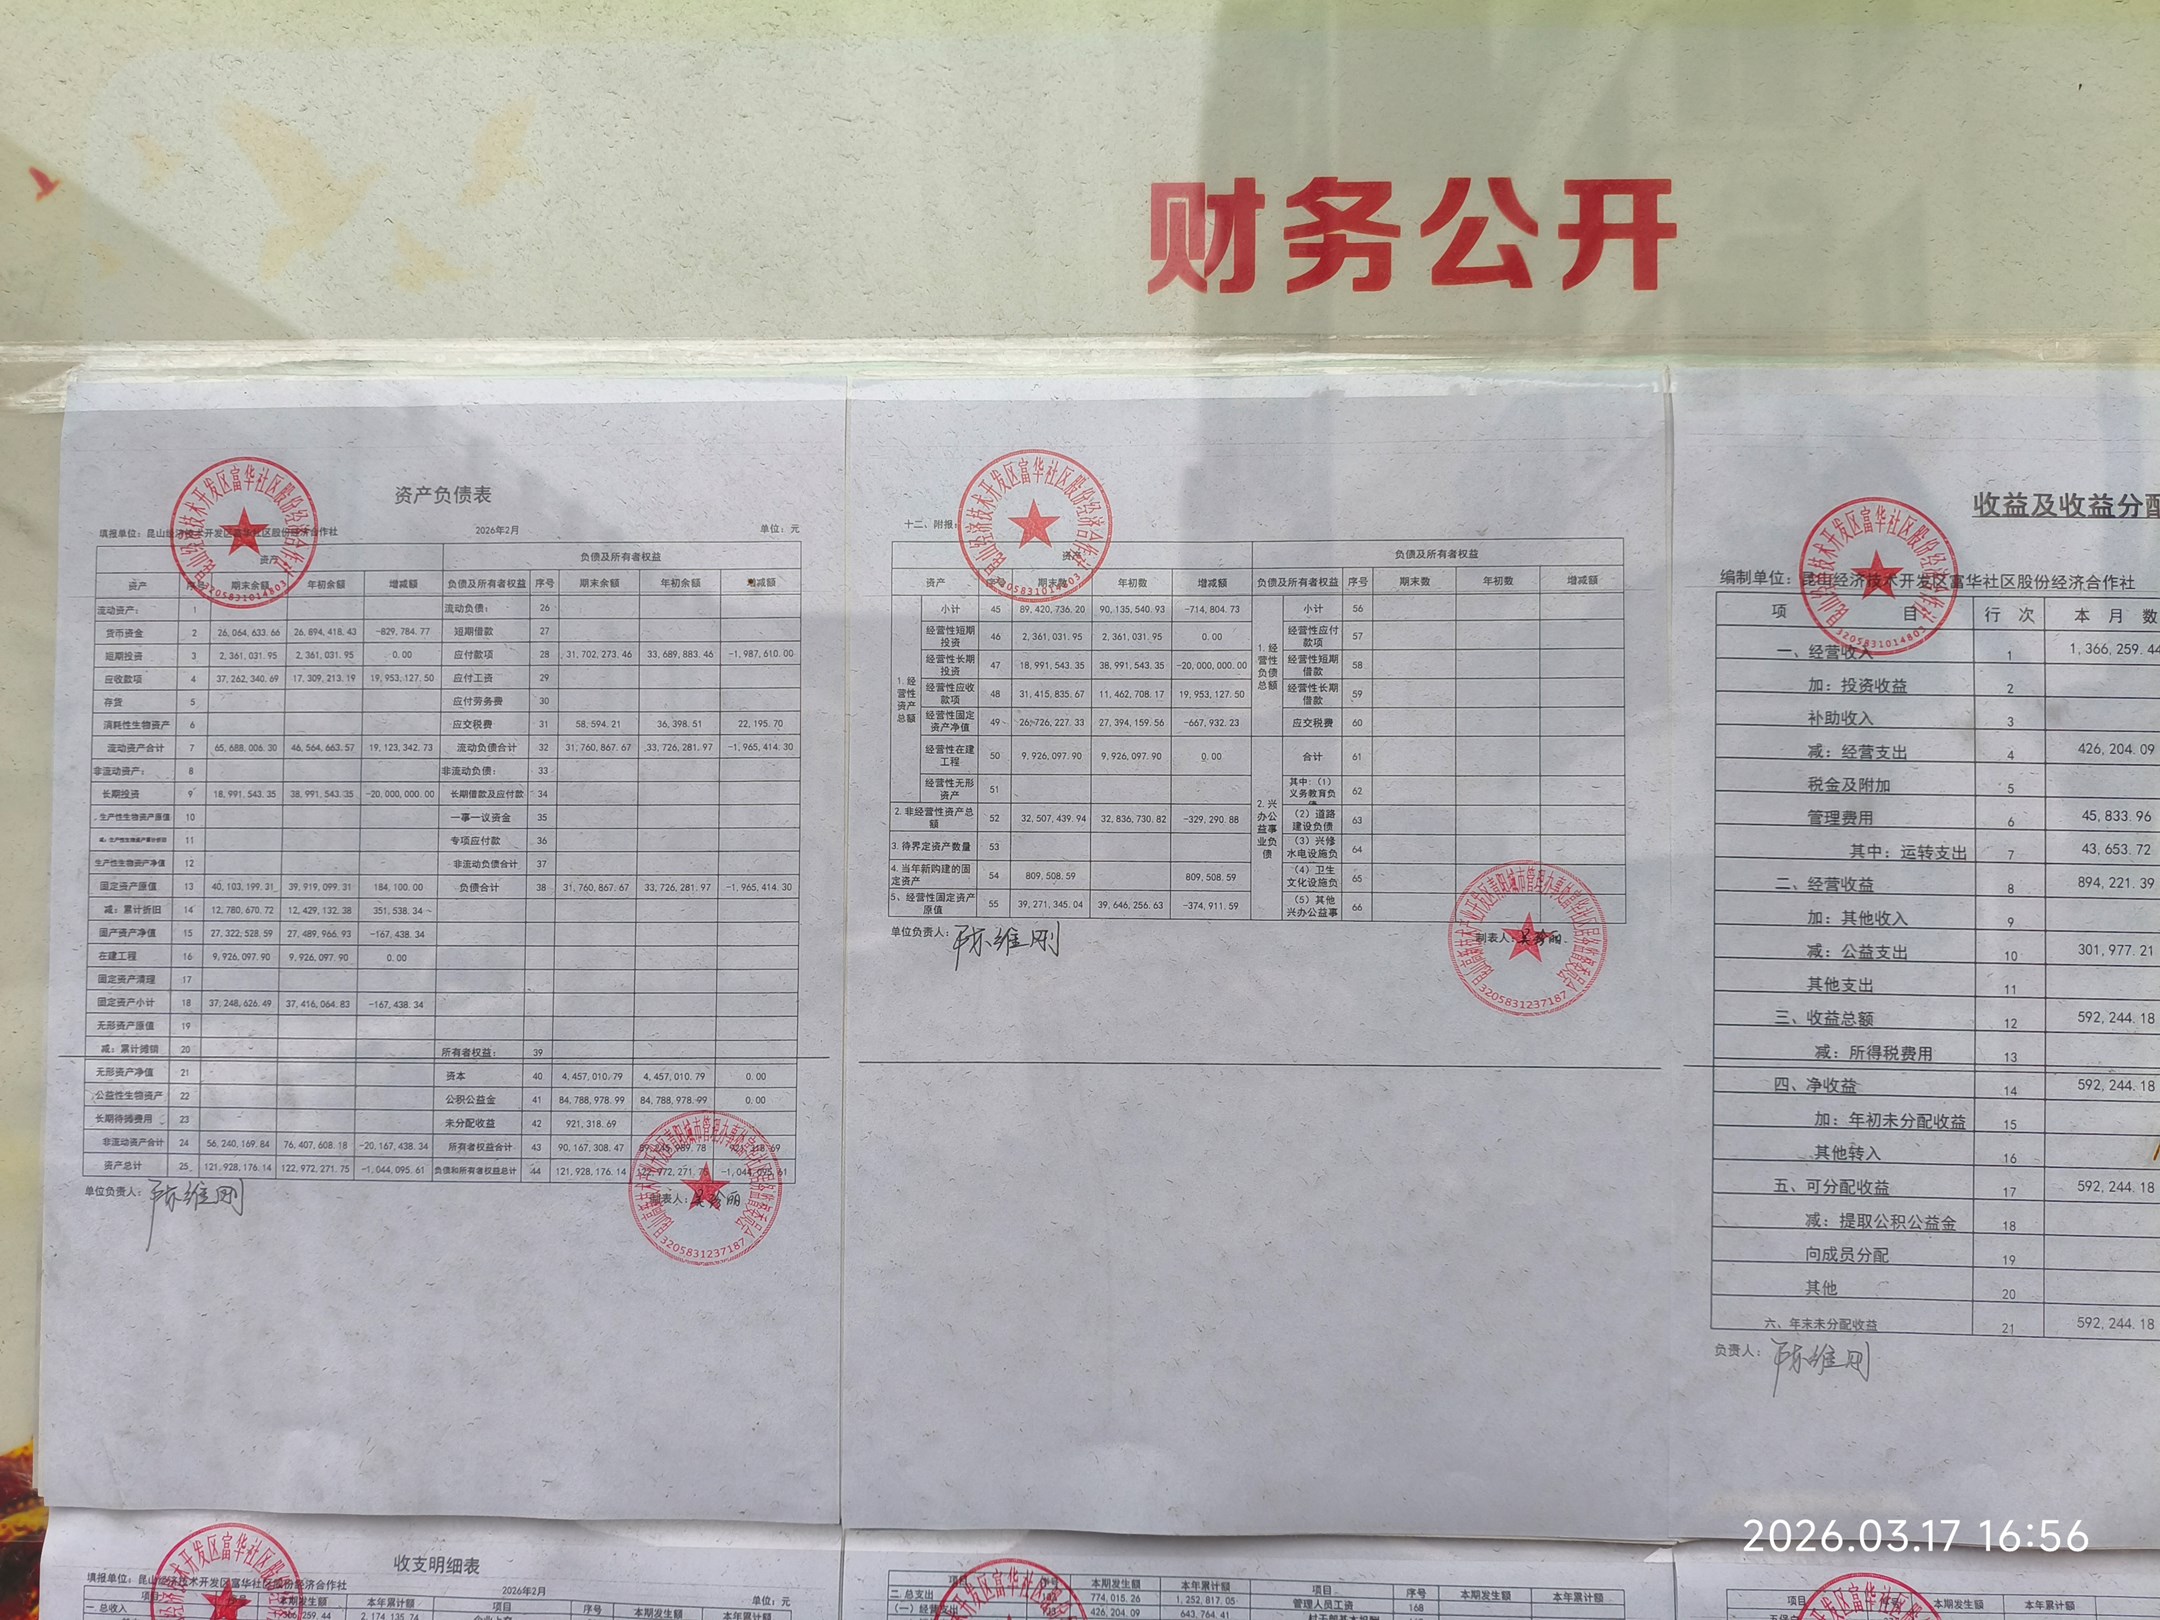 财务公开
资产负债表
填报单位：昆山经济技术开发区富华社区股份经济合作社 2026年2月 单位：元
资产 负债及所有者权益
资产 序号 期末余额 年初余额 增减额 负债及所有者权益 序号 期末余额 年初余额 增减额
流动资产： 1 流动负债： 26
货币资金 2 26,064,633.66 26,894,418.43 -829,784.77 短期借款 27
短期投资 3 2,361,031.95 2,361,031.95 0.00 应付款项 28 31,702,273.46 33,689,883.46 -1,987,610.00
应收款项 4 37,262,340.69 17,309,213.19 19,953,127.50 应付工资 29
存货 5 应付劳务费 30
消耗性生物资产 6 应交税费 31 58,594.21 36,398.51 22,195.70
流动资产合计 7 65,688,006.30 46,564,663.57 19,123,342.73 流动负债合计 32 31,760,867.67 33,726,281.97 -1,965,414.30
非流动资产： 8 非流动负债： 33
长期投资 9 18,991,543.35 38,991,543.35 -20,000,000.00 长期借款及应付款 34
生产性生物资产原值 10 一事一议资金 35
减：生产性生物资产累计折旧 11 专项应付款 36
生产性生物资产净值 12 非流动负债合计 37
固定资产原值 13 40,103,199.31 39,919,099.31 184,100.00 负债合计 38 31,760,867.67 33,726,281.97 -1,965,414.30
减：累计折旧 14 12,780,670.72 12,429,132.38 351,538.34
固产资产净值 15 27,322,528.59 27,489,966.93 -167,438.34
在建工程 16 9,926,097.90 9,926,097.90 0.00
固定资产清理 17
固定资产小计 18 37,248,626.49 37,416,064.83 -167,438.34
无形资产原值 19
减：累计摊销 20 所有者权益： 39
无形资产净值 21 资本 40 4,457,010.79 4,457,010.79 0.00
公益性生物资产 22 公积公益金 41 84,788,978.99 84,788,978.99 0.00
长期待摊费用 23 未分配收益 42 921,318.69
非流动资产合计 24 56,240,169.84 76,407,608.18 -20,167,438.34 所有者权益合计 43 90,167,308.47
资产总计 25 121,928,176.14 122,972,271.75 -1,044,095.61 负债和所有者权益总计 44 121,928,176.14 122,972,271.75 -1,044,095.61
单位负责人： 制表人：
3205831237187
十二、附报：
资产 负债及所有者权益
资产 序号 期末数 年初数 增减额 负债及所有者权益 序号 期末数 年初数 增减额
1.经营性资产总额 小计 45 89,420,736.20 90,135,540.93 -714,804.73 1.经营性负债总额 小计 56
经营性短期投资 46 2,361,031.95 2,361,031.95 0.00 经营性应付款项 57
经营性长期投资 47 18,991,543.35 38,991,543.35 -20,000,000.00 经营性短期借款 58
经营性应收款项 48 31,415,835.67 11,462,708.17 19,953,127.50 经营性长期借款 59
经营性固定资产净值 49 26,726,227.33 27,394,159.56 -667,932.23 应交税费 60
经营性在建工程 50 9,926,097.90 9,926,097.90 0.00 2.兴办公益事业负债 合计 61
经营性无形资产 51 其中：（1）义务教育负债 62
2.非经营性资产总额 52 32,507,439.94 32,836,730.82 -329,290.88 （2）道路建设负债 63
3.待界定资产数量 53 （3）兴修水电设施负 64
4.当年新购建的固定资产 54 809,508.59 809,508.59 （4）卫生文化设施负 65
5、经营性固定资产原值 55 39,271,345.04 39,646,256.63 -374,911.59 （5）其他兴办公益事 66
单位负责人： 制表人：
3205831237187
收益及收益分配
编制单位：昆山经济技术开发区富华社区股份经济合作社
项 目 行 次 本 月 数
一、经营收入 1 1,366,259.44
加：投资收益 2
补助收入 3
减：经营支出 4 426,204.09
税金及附加 5
管理费用 6 45,833.96
其中：运转支出 7 43,653.72
二、经营收益 8 894,221.39
加：其他收入 9
减：公益支出 10 301,977.21
其他支出 11
三、收益总额 12 592,244.18
减：所得税费用 13
四、净收益 14 592,244.18
加：年初未分配收益 15
其他转入 16
五、可分配收益 17 592,244.18
减：提取公积公益金 18
向成员分配 19
其他 20
六、年末未分配收益 21 592,244.18
负责人：
收支明细表
填报单位：昆山经济技术开发区富华社区股份经济合作社 2026年2月 单位：元
项目 序号 本期发生额 本年累计额 项目 序号 本期发生额 本年累计额
一 总收入 2,174,135.74
项目 序号 本期发生额 本年累计额 项目 序号 本期发生额 本年累计额
二 总支出 774,015.26 1,252,817.05 管理人员工资 168
（一）经营支出 426,204.09 643,764.41
项目 序号 本期发生额 本年累计额
2026.03.17 16:56